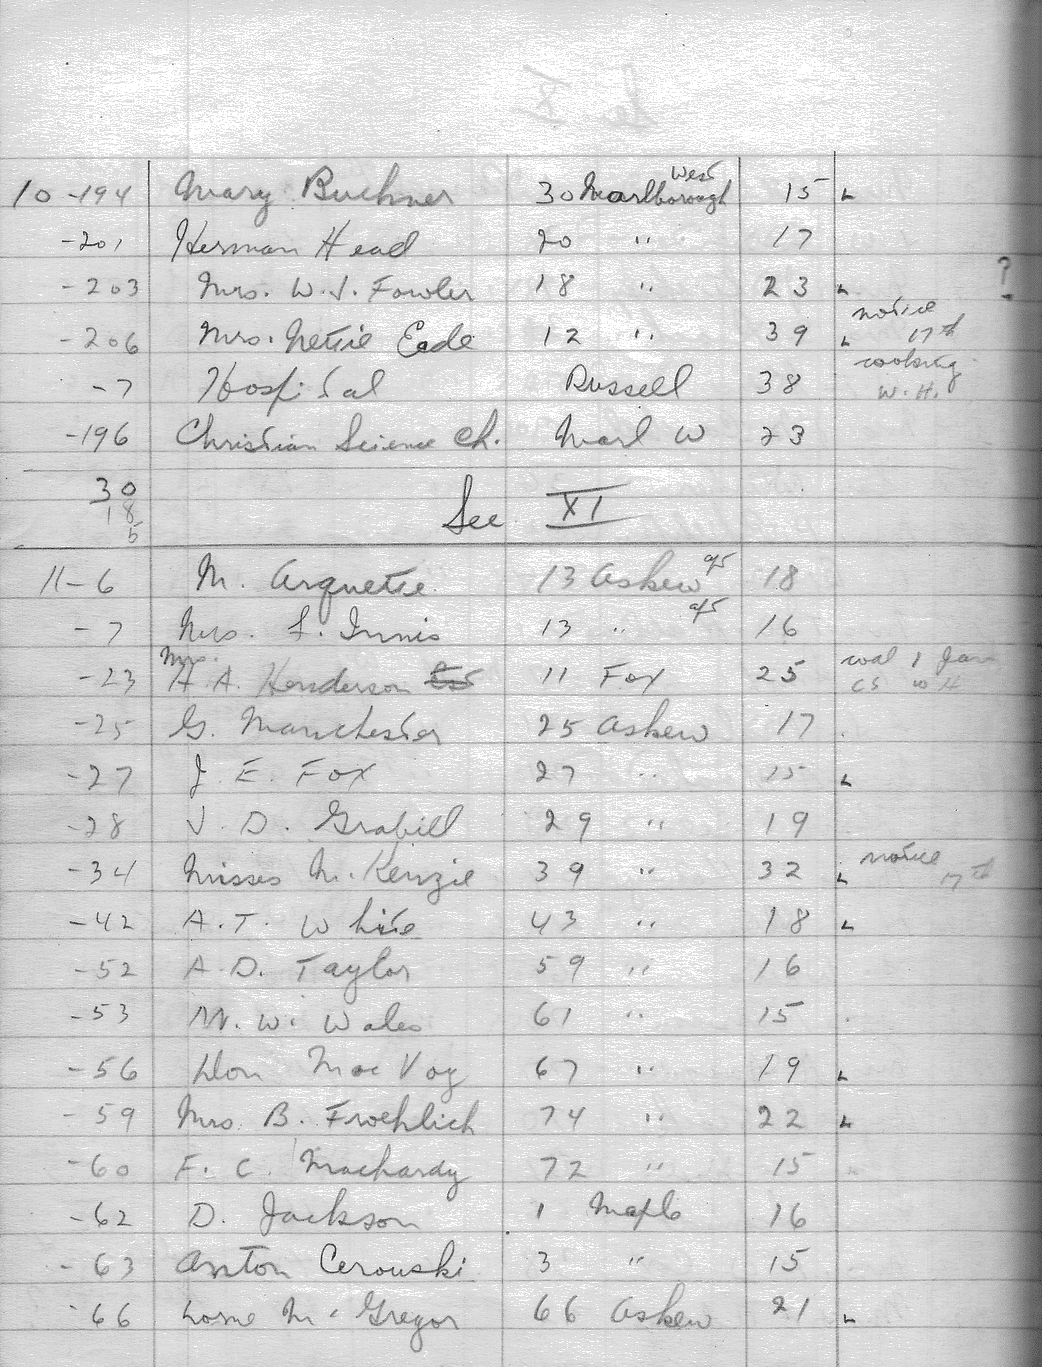 10-194 Mary Buckner 30 Marlborough West 15 L
-201 Herman Head 20 " 17
-203 Mrs. W. J. Fowler 18 " 23 L ?
-206 Mrs. Nettie Eade 12 " 39 L notice 17th
-7 Hospital Russell 38 cooking W.H.
-196 Christian Science Ch. Marl W 23
30
18
5
See XI
11-6 M. Arquette 13 Askew 18
-7 Mrs. F. Innis 13 " 16
-23 Mrs. A. Henderson 11 Fox 25 1 Jan WH
-25 G. Manchester 25 Askew 17
-27 J. E. Fox 27 " 15 L
-28 J. D. Grabill 29 " 19
-34 Misses McKenzie 39 " 32 L notice 17th
-42 A. T. White 43 " 18 L
-52 A. D. Taylor 59 " 16
-53 W. W. Wales 61 " 15
-56 Don MacVoy 67 " 19 L
-59 Mrs. B. Froehlich 74 " 22 L
-60 F. C. Machardy 72 " 15
-62 D. Jackson 1 Maple 16
-63 Anton Cerouski 3 " 15
-66 Lorne McGregor 66 Askew 21 L